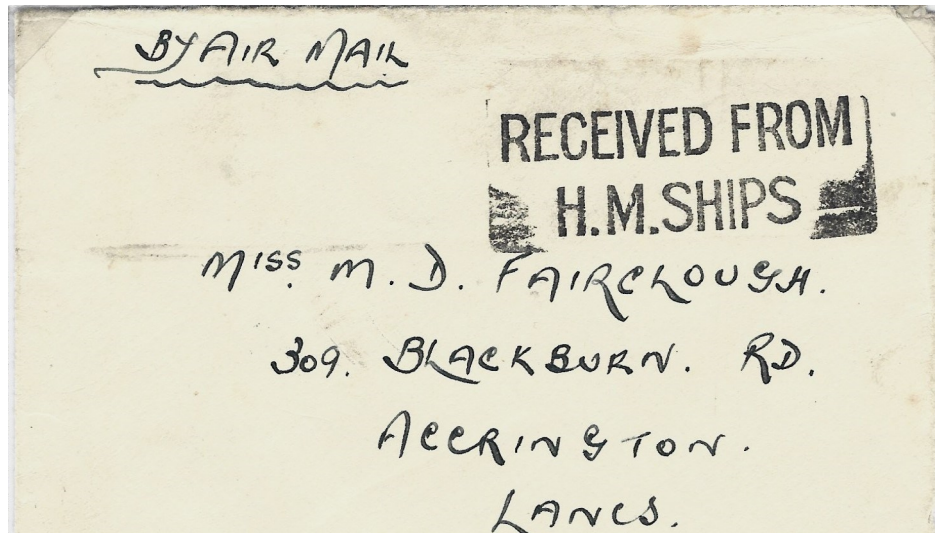 BY AIR MAIL
RECEIVED FROM
H.M.SHIPS
MISS. M. D. FAIRCLOUGH.
309. BLACKBURN. RD.
ACCRINGTON.
LANCS.